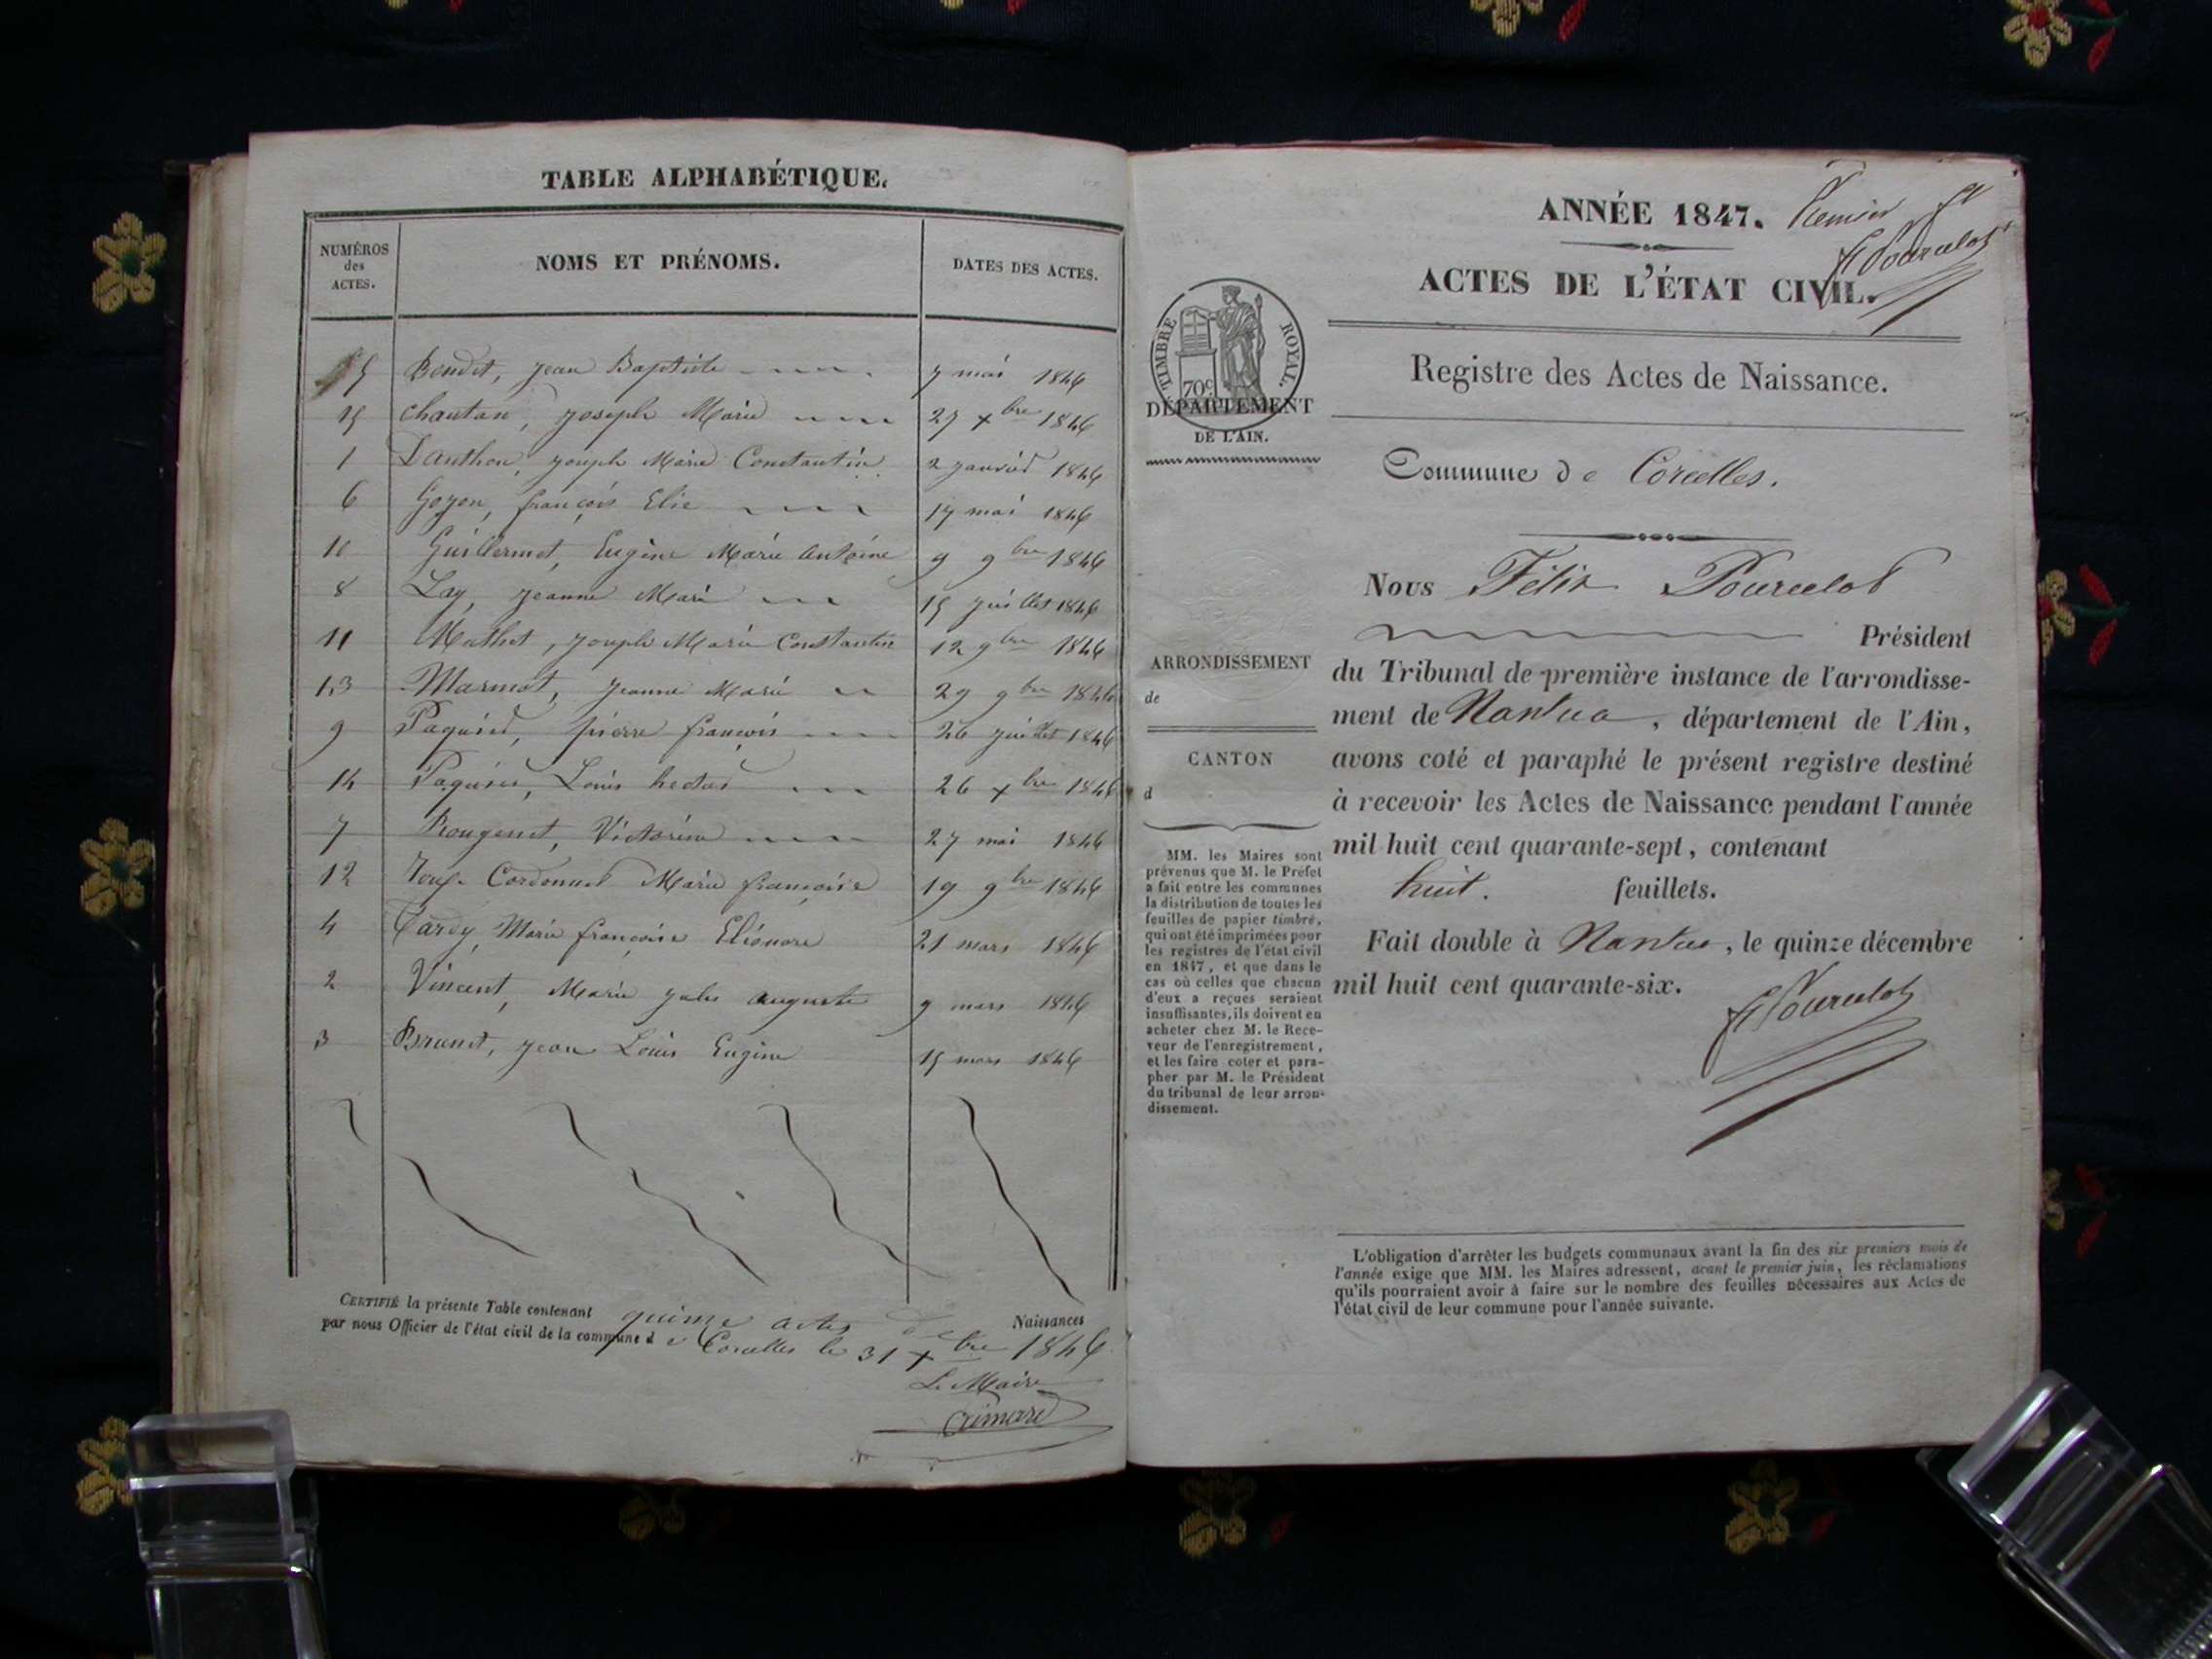 TABLE ALPHABÉTIQUE.
NUMÉROS
des
ACTES.
NOMS ET PRÉNOMS.
DATES DES ACTES.
5 Bendet, jean Baptiste 7 mai 1846
15 Chautan, joseph Marie 27 xbre 1846
1 Danthon, joseph Marie Constantin 2 janvier 1846
6 Goyon, françois Elie 17 mai 1846
10 Guillermet, Eugène Marie Antoine 9 9bre 1846
8 Lay, jeanne Marie 15 juillet 1846
11 Mathet, joseph Marie Constantin 12 9bre 1846
13 Marmet, jeanne Marie 29 9bre 1846
9 Paquier, pierre françois 26 juillet 1846
14 Paquier, Louis hector 26 xbre 1846
7 Rougemet, Victorine 27 mai 1846
12 Cordonnel Marie françoise 19 9bre 1846
4 Tardy, Marie françoise Eléonore 21 mars 1846
2 Vincent, Marie jules auguste 9 mars 1846
3 Brunet, jean Louis Eugène 15 mars 1846
CERTIFIÉ la présente Table contenant quinze actes de Naissances
par nous Officier de l'état civil de la commune de Corcelles le 31 xbre 1846
Le Maire
ANNÉE 1847. Premier
F Pourcelot
ACTES DE L'ÉTAT CIVIL.
TIMBRE ROYAL.
70c
DÉPARTEMENT
DE L'AIN.
Registre des Actes de Naissance.
Commune de Corcelles.
Nous Félix Pourcelot
Président
du Tribunal de première instance de l'arrondisse-
ment de Nantua, département de l'Ain,
avons coté et paraphé le présent registre destiné
à recevoir les Actes de Naissance pendant l'année
mil huit cent quarante-sept, contenant
huit. feuillets.
Fait double à Nantua, le quinze décembre
mil huit cent quarante-six.
F Pourcelot
ARRONDISSEMENT
de
CANTON
d
MM. les Maires sont
prévenus que M. le Préfet
a fait entre les communes
la distribution de toutes les
feuilles de papier timbré,
qui ont été imprimées pour
les registres de l'état civil
en 1847, et que dans le
cas où celles que chacun
d'eux a reçues seraient
insuffisantes, ils doivent en
acheter chez M. le Rece-
veur de l'enregistrement,
et les faire coter et para-
pher par M. le Président
du tribunal de leur arron-
dissement.
L'obligation d'arrêter les budgets communaux avant la fin des six premiers mois de
l'année exige que MM. les Maires adressent, avant le premier juin, les réclamations
qu'ils pourraient avoir à faire sur le nombre des feuilles nécessaires aux Actes de
l'état civil de leur commune pour l'année suivante.